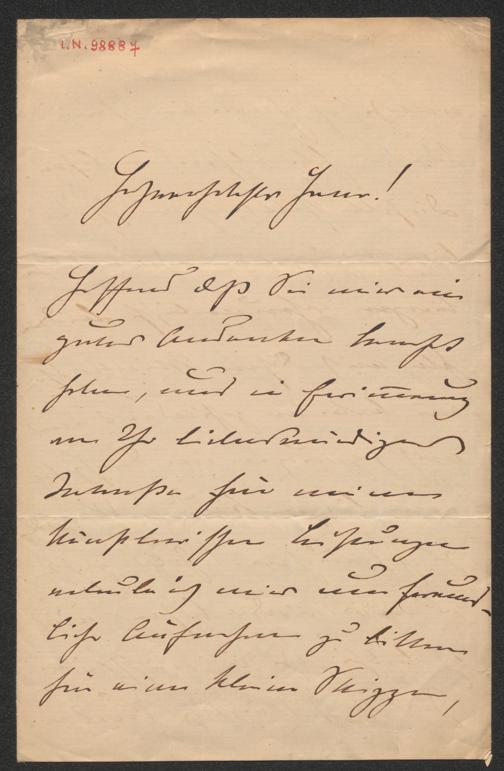 I.N. 98887
Hochverehrtester Herr!
Hoffend daß Sie mir ein
gutes Andenken bewahrt
haben, und in Erinnerung
an Ihr liebenswürdiges
Interesse für meine
künstlerischen Leistungen
erlaube ich mir um freund-
liche Aufnahme zu bitten
für eine kleine Skizze,